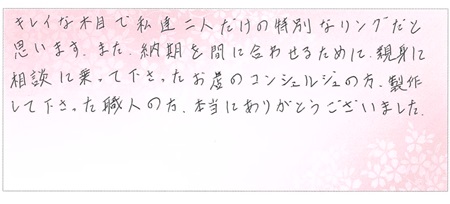 キレイな木目で私達二人だけの特別なリングだと
思います。また、納期を間に合わせるために、親身に
相談に乗って下さったお店のコンシェルジュの方、製作
して下さった職人の方、本当にありがとうございました。